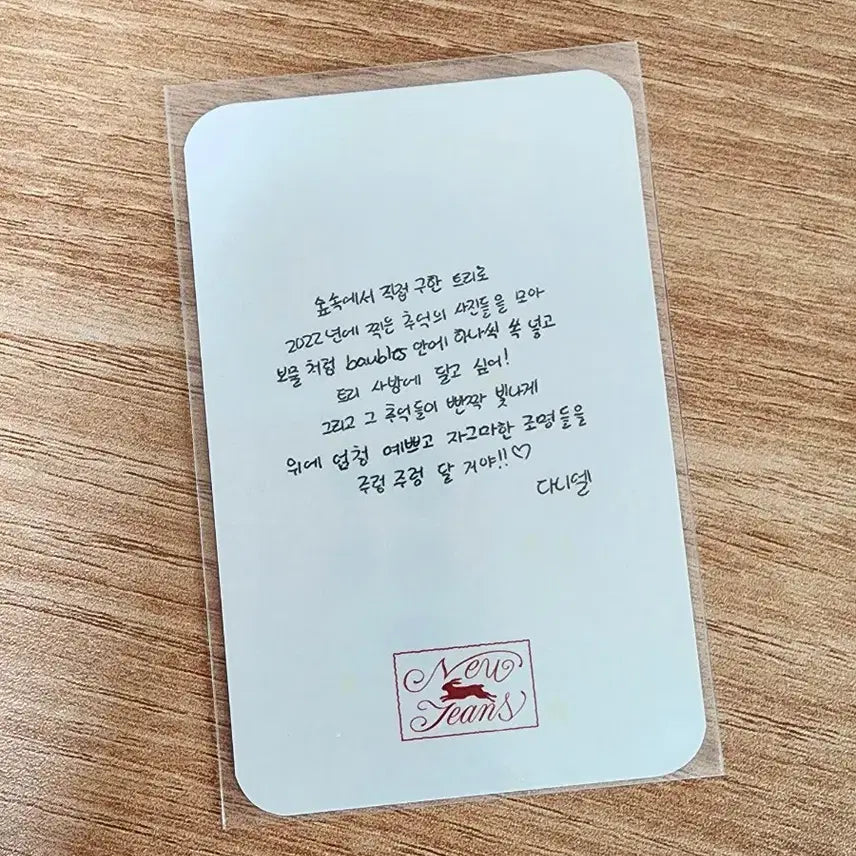 숲속에서 직접 구한 트리로
2022년에 찍은 추억의 사진들을 모아
보물처럼 baubles 안에 하나씩 쏙 넣고
트리 사방에 달고 싶어!
그리고 그 추억들이 반짝 빛나게
위에 엄청 예쁘고 자그마한 조명들을
주렁주렁 달 거야!!♡
다니엘
New
Jeans